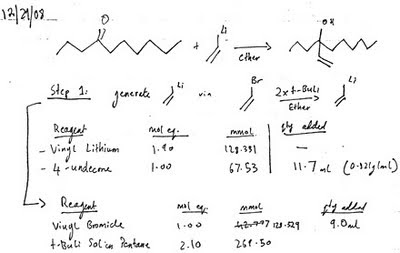 12/29/08
O
Li
+
Ether
OH
Step 1: generate Li via Br 2x t-BuLi Li
Ether
Reagent mol eq. mmol qty added
- Vinyl Lithium 1.90 128.331 —
- 4-undecone 1.00 67.53 11.7 mL (0.821g/mL)
Reagent mol eq. mmol qty added
Vinyl Bromide 1.00 128.529 9.0mL
t-BuLi Sol'n in Pentane 2.10 269.50